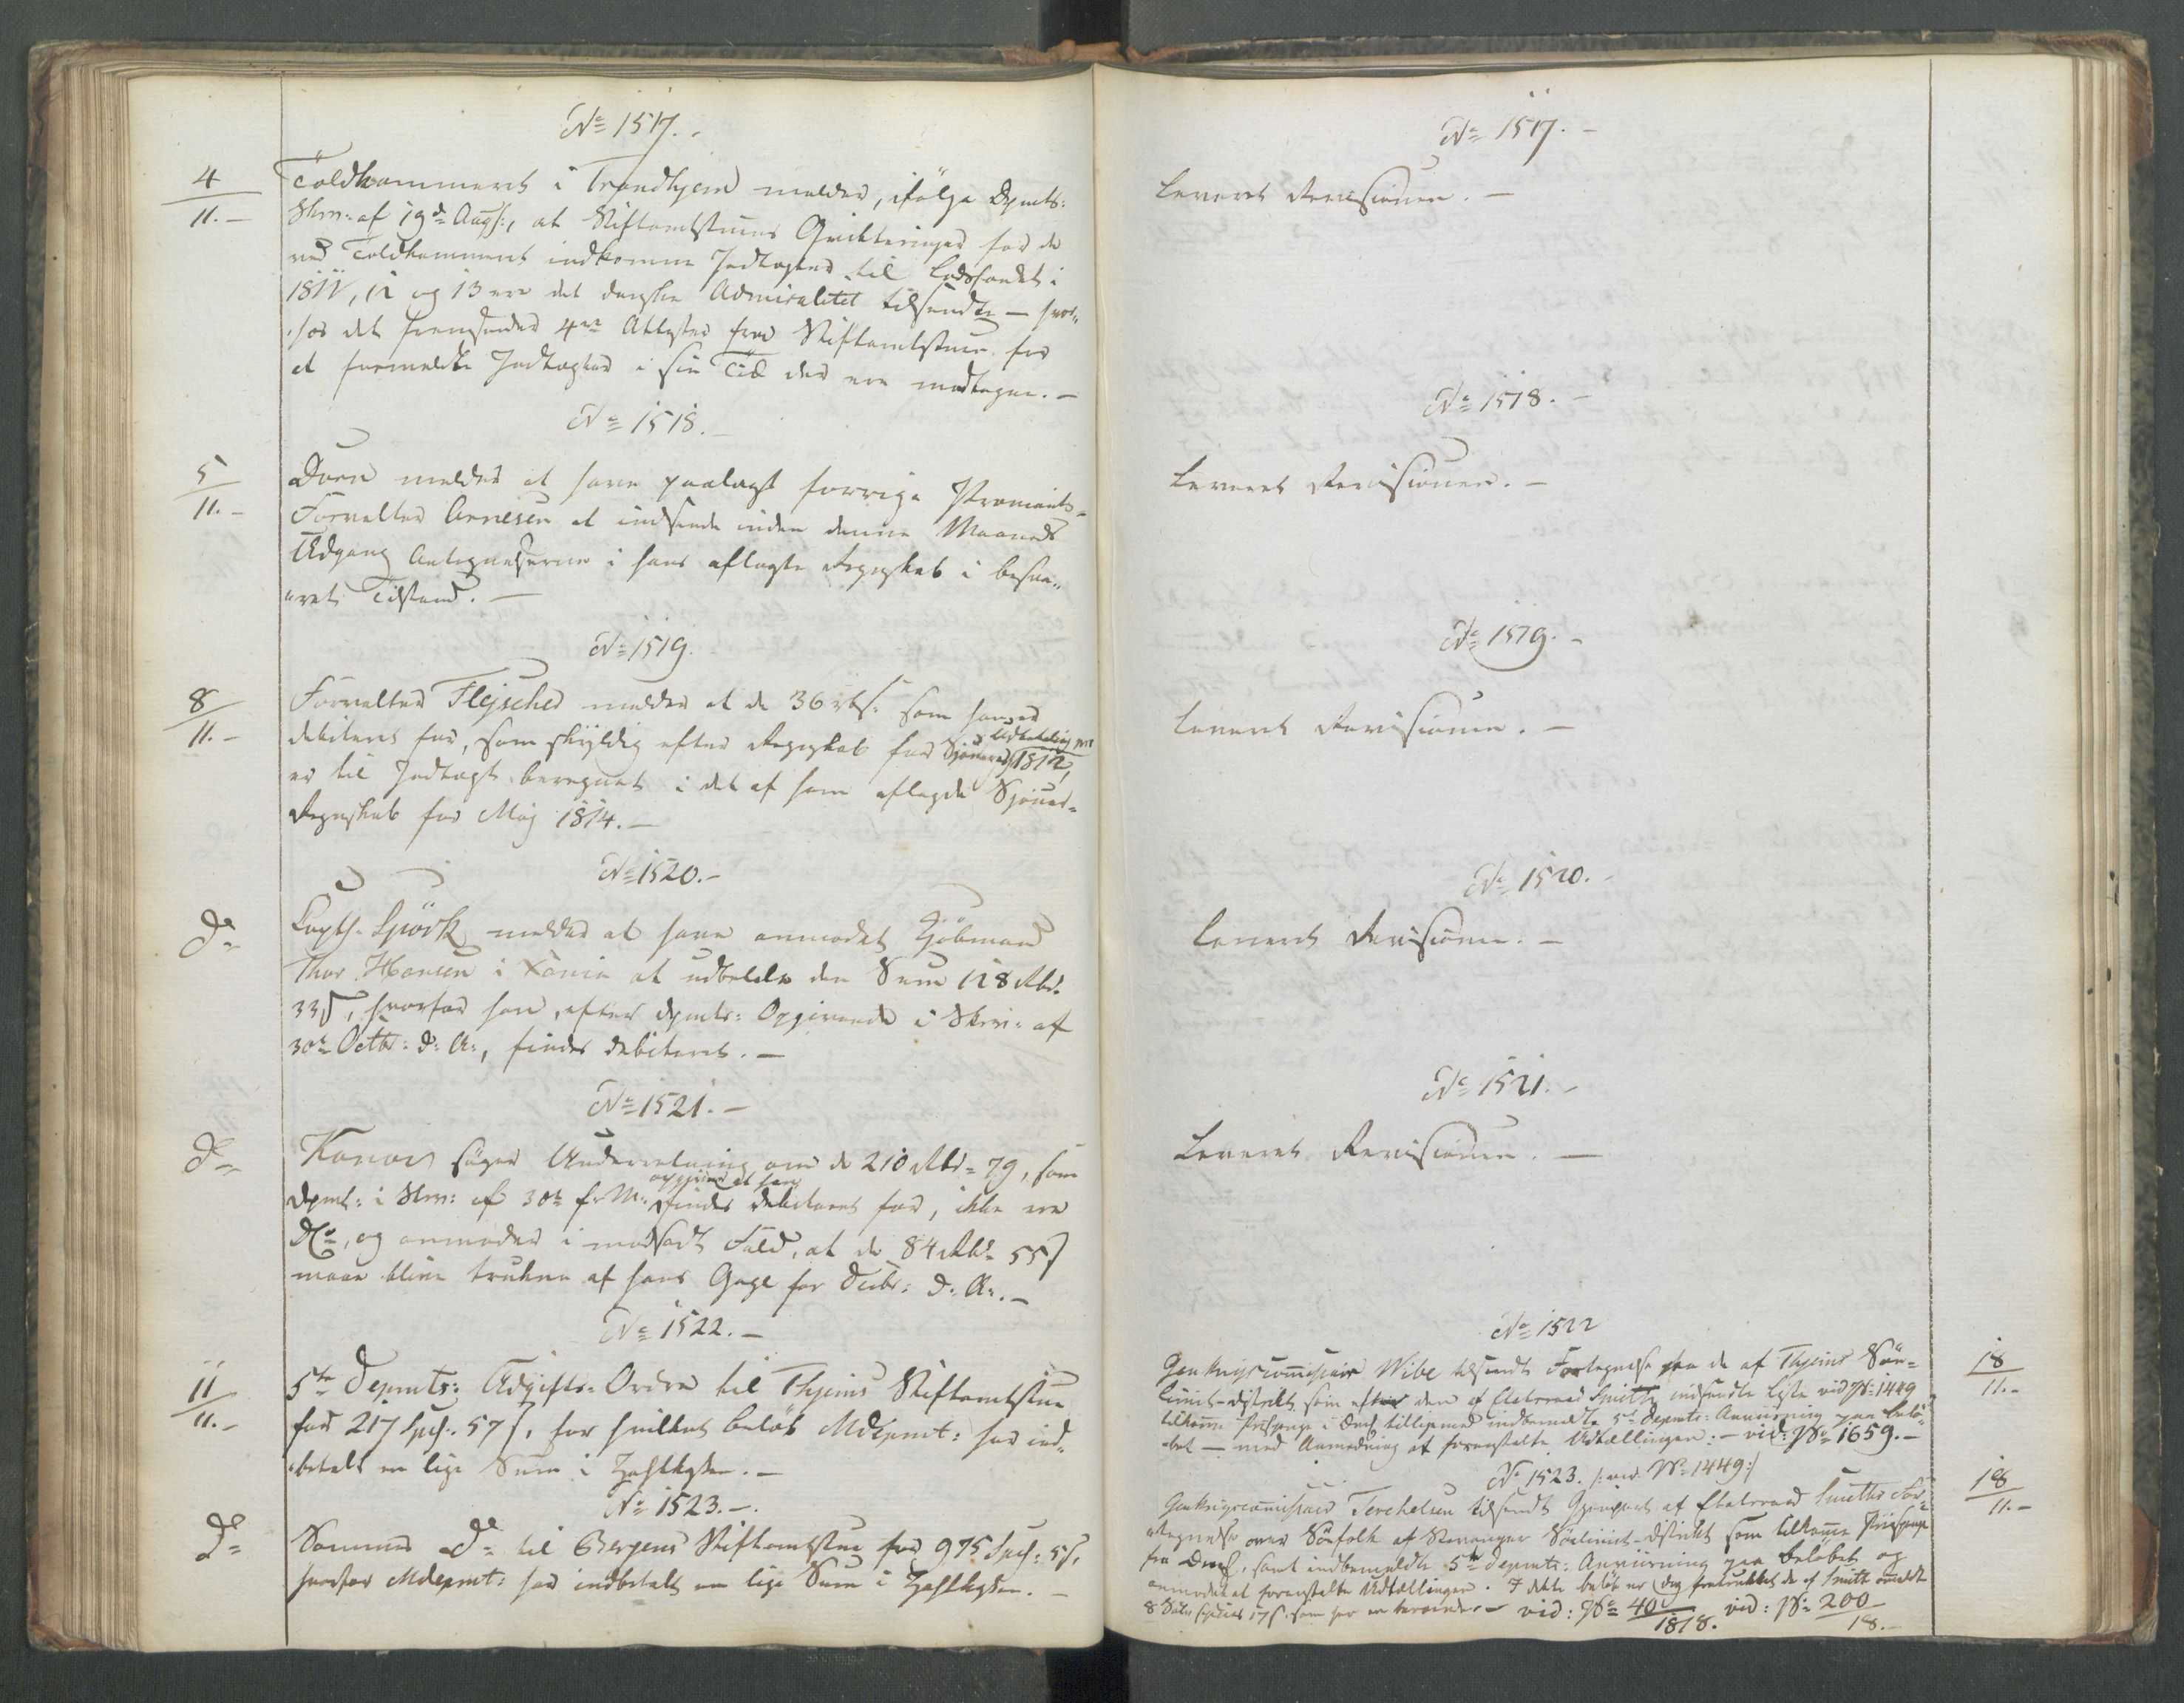 No 1517.
4
11.-
Toldkammeret i Trondhjem melder, ifølge Dpmts:
Skriv: af 19de Augs:, at Stiftamtstuens Qvitteringer for de
ved Toldkammeret indkomne Indtægter til Lodsfondet i
1811, 12 og 13 ere det danske Admiralitet tilsendte - hvor"
"hos det fremsender 4re Attester fra Stiftamtstuen for
at formeldte Indtægter i sin Tid der ere modtagne. -
No 1518.
5
11.-
Dorn melder at have paalagt forrige Proviants-
Forvalter Arnesen at indsende inden denne Maaneds
Udgang Antegnelserne i hans aflagte Regnskab i besva"
"ret Tilstand. -
No 1519.
8
11.-
Forvalter Flejscher melder at de 36 rbs: som han er
debiteret for, som skyldig efter Regnskab for Sjouer Udbetaling pro 1812,
er til Indtægt beregnet i det af ham aflagde Sjouer-
Regnskab for Maj 1814. -
No 1520. -
do
Capt. Spørck melder at have anmodet Kjøbmand
Thor Hansen i Xania at udbetale den Sum 128 Rbd.
33 s, hvorfor han, efter Dpmts: Opgivende i Skriv: af
30te Octbr: d: A:, findes debiteret. -
No 1521. -
do
Kanow søger Underretning om de 210 Rbd 79, som
Dpmt: i Skriv: af 30te f. M: opgiver at han findes debiteret for, ikke ere
Nco, og anmoder i modsat Fald, at de 84 Rbd 55 s
maae blive trukne af hans Gage for Decbr: d. A: . -
No 1522. -
11
11.-
5te Depmts: Udgifts-Ordre til Thjems Stiftamtstue
for 217 Spd: 57 s, for hvilket Beløb MDepmt: har ind"
"betalt en lige Sum i Zahlkassen. -
No 1523. -.
do
Sammes do til Bergens Stiftamtstue for 975 Spd: 5 s,
hvorfor MDepmt: har indbetalt en lige Sum i Zahlkassen. -
No 1517. -
Leveret Revisionen. -
No 1518. -
Leveret Revisionen. -
No 1519. -
Leveret Revisionen. -
No 1520. -
Leveret Revisionen. -
No 1521. -
Leveret Revisionen. -
No 1522
Genkrigscommissair Wibe tilsendt Fortegnelse paa de af Thjems Søe-
Limits-Distrikt som efter den af Etatsraad Smith indsendte Liste vid No 1449
tilkomme Prispenge i tilligemed indbemeldte 5te Depmts: Anviisning paa Belø-
bet - med Anmodning at foranstalte Udtællingen: - vid: No 1659. -
18
11.-
No 1523. /: vid. No 1449:/
Genkrigscommissair Terchelsen tilsendt Gjenpart af Etatsraad Smiths For-
tegnelse over Søefolk af Stavanger Søelimit-Distrikt som tilkomme Prisepenge
fra samt indbemeldte 5te Depmts: Anviisning paa Beløbet og
anmodet at foranstalte Udtællingen. I dette Beløb er dog fratrukket de af Smith
8 Species 17 s. som her - vid: No 40/1818. vid: No 200/18. -
18
11.-